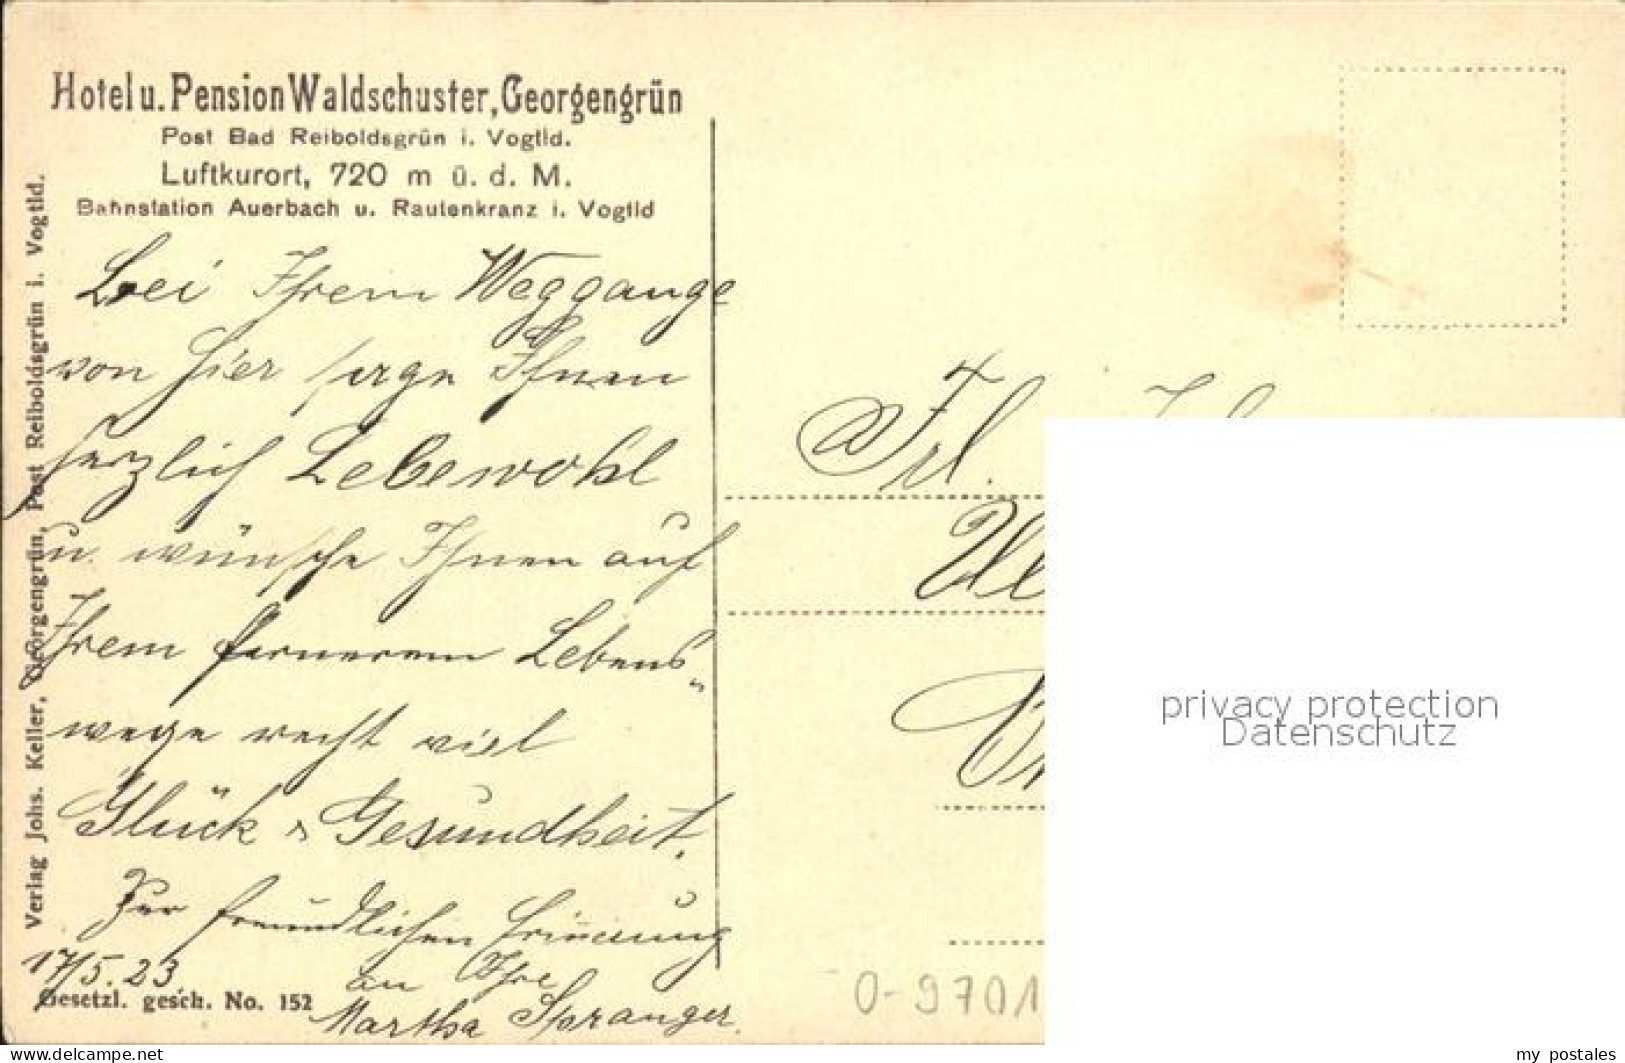 Hotel u. Pension Waldschuster, Georgengrün
Post Bad Reiboldsgrün i. Vogtld.
Luftkurort, 720 m ü. d. M.
Bahnstation Auerbach u. Rautenkranz i. Vogtld
Bei Ihrem Weggange
von hier sage Ihnen
herzlich Lebewohl
u. wünsche Ihnen auf
Ihrem ferneren Lebens„
wege recht viel
Glück & Gesundheit.
Zur freundlichen Erinnerung
an Ihre
Martha Spranger.
17/5.23.
Gesetzl. gesch. No. 152
Verlag Johs. Keller, Georgengrün, Post Reiboldsgrün i. Vogtld.
Frl.
0-9701
privacy protection
Datenschutz
www.delcampe.net
my_postales